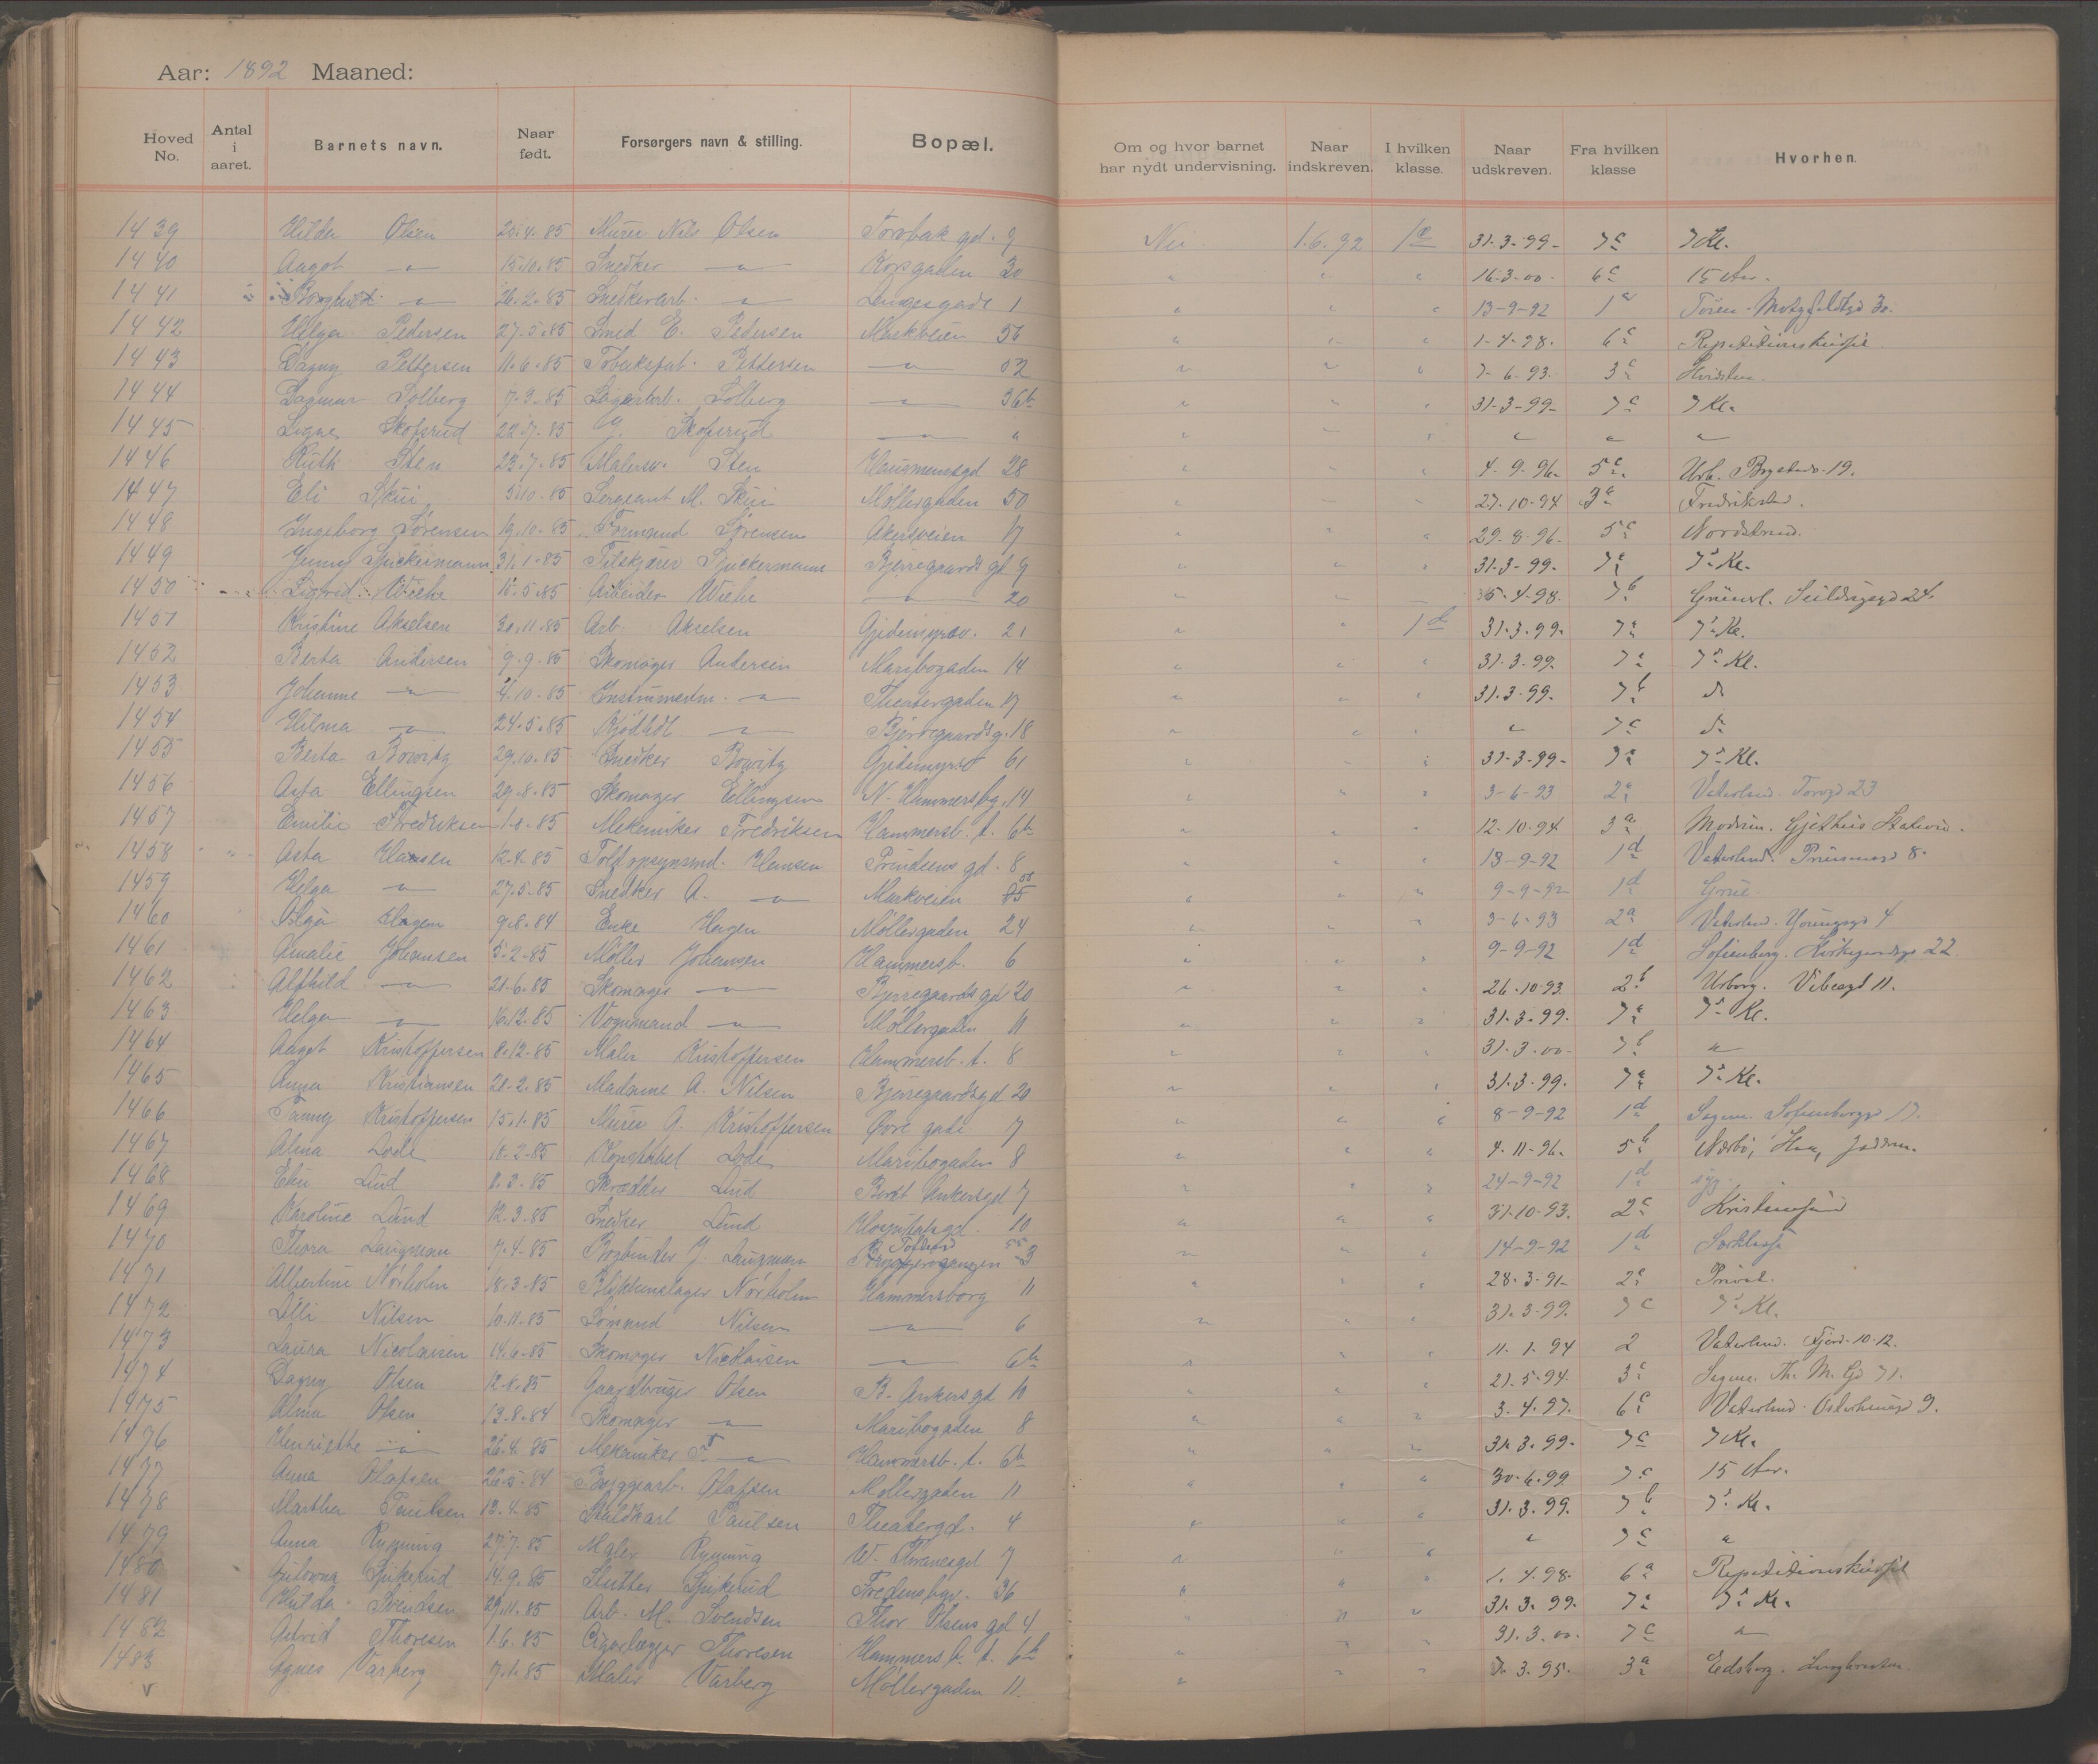 Aar: 1892 Maaned:
Hoved No. Antal i aaret. Barnets navn. Naar født. Forsørgers navn & stilling. Bopæl. Om og hvor barnet har nydt undervisning. Naar indskreven. I hvilken klasse. Naar udskreven. Fra hvilken klasse Hvorhen.
1439 Hilda Olsen 20.4.85 Murer Nils Olsen Torvbak gd. 9 Nei 1.6.92 31-3-99- 7c 7 Kl.
1440 Aagot 15.10.85 Snedker Korsgaden 30 16-3-00- 6c 15 Aar.
1441 26.2.85 Snedkerarb. Langesgade 1 13-9-92 Motzfeldtsgd 30.
1442 Helga Pedersen 27.5.85 Smed E. Pedersen Markveien 56 1-4-98. 6c
1443 Dagny Pettersen 11.6.85 Pettersen 52 7-6-93. 3c Hvidsten.
1444 Dagmar Solberg 7.9.85 Solberg 36b 31-3-99- 7c 7 Kl.
1445 Signe Skofsrud 22.7.85 Skofsrud
1446 Ruth Sten 23.7.85 Malersv. Sten Hausmannsgd 28 4-9-96- 5c 19.
1447 Eli Skui 5.10.85 Sergeant M. Skui Møllergaden 50 27-10-94 3a Fredrikstad.
1448 Ingeborg Sørensen 19.10.85 Formand Sørensen Akersveien 17 29-8-96. 5c Nordstrand.
1449 Jenny Spickermann 31.1.85 Spickermann Bjerregaards gd 9 31-3-99. 7 Kl.
1450 Sigrid Wiehe 16.5.85 Arbeider Wiehe 20 5-4-98. 7b Seilduksgd 24.
1451 Kristine Akselsen 30.11.85 Arb. Akselsen Gjetemyrsv. 21 1d 31.3.99. 7a 7 Kl.
1452 Berta Andersen 9.9.85 Skomager Andersen Maribogaden 14 31.3.99. 7a 7 Kl.
1453 Johanne 4.10.85 Instrumentm. Theatergaden 17 31.3.99. 7b
1454 Hilma 24.5.85 Bjerregaardsg. 18 7c
1455 Berta Bowitz 29.10.85 Snedker Bowitz Gjetemyrsv 61 31-3-99- 7a 7 Kl.
1456 Asta Ellingsen 29.8.85 Skomager Ellingsen N. Hammersbg. 14 3-6-93 2a Vaterland. Torvgd 23
1457 Emilie Fredriksen 1.8.85 Mekaniker Fredriksen Hammersb. t. 6b 12.10.94 3a Modum. Gjethus Station.
1458 Asta Hansen 12.4.85 Hansen gd. 8 13-9-92 1d Vaterland. 8.
1459 Helga 27.5.85 Snedker A. Markveien 9-9-92 1d Grue
1460 Olga Hagen 9.8.84 Enke Hagen Møllergaden 24 3-6-93 2a Vaterland. Youngsgd 4
1461 Amalie Johansen 5.2.85 Møller Johansen Hammersb. 6 9-9-92 1d Sofienberg. 22
1462 Alfhild 21.6.85 Skomager Bjerregaards gd 20 26.10-93. 2b Uxborg. Vibesgd 11.
1463 Helga 16.12.85 Vognmand Møllergaden 11 31.3.99. 7a 7 Kl.
1464 Aagot Kristoffersen 8.12.85 Maler Kristoffersen Hammersb. t. 8 31.3.00. 7b
1465 Anna Kristiansen 20.2.85 Madame A. Nilsen Bjerregaardsgd 20 31.3.99. 7a 7 Kl.
1466 Fanny Kristoffersen 15.1.85 Murer A. Kristoffersen Øvre gade 7 8-9-92 1d Sagene. Sofienberggd 17.
1467 Alma Lode 18.2.85 Konstabel Lode Maribogaden 8 4.11-96. 5b Nærbø, Haa, Jæderen.
1468 Lind 8.3.85 Skrædder Lind Bernt Ankersgd 7 24-9-92 1d syg.
1469 Karoline Lund 12.3.85 Snedker Lund Hospitalsgd. 10 31-10-93. 2c Kristiansund
1470 Thora Langman 7.4.85 Bogbinder J. Langman 14-9-92 1d
1471 Albertine Nørholm 18.3.85 Blikkenslager Nørholm Hammersborg 11 28.3-91- Privat.
1472 Lilli Nilsen 10.11.85 Sømand Nilsen 6 31.3-99. 7c 7 Kl.
1473 Laura Nicolaisen 14.6.85 Skomager Nicolaisen 6b 11.1.94 2 Vaterland. Fjerd. 10-12.
1474 Dagny Olsen 12.8.85 Gaardbruger Olsen B. Ankersgd 10 21.5-94. 3c Sagene. Th. M. Gd 71.
1475 Alma Olsen 13.8.84 Skomager Maribogaden 8 3.4.97. 6c Vaterland. Østerhausgd 9.
1476 Henriette 26.4.85 Mekaniker Hammersb. t. 6b 31.3.99. 7c 7 Kl.
1477 Anna Olafsen 26.5.84 Byggearb. Olafsen Møllergaden 11 30.6.99 7c 15 Aar.
1478 Martha Paulsen 13.4.85 Staldkarl Paulsen Theatergd. 4 31.3.99. 7b 7 Kl.
1479 Anna Rynning 27.7.85 Maler Rynning W. Thranesgd 7 7c
1480 Spikerud 14.9.85 Slutter Spikerud Fredensbgv. 36 1.4.98. 6a
1481 Hilda Svendsen 29.11.85 Arb. M. Svendsen Thor Olsens gd 4 31.3.99. 7a 7 Kl.
1482 Astrid Thoresen 1.6.85 Cigarlægger Thoresen Hammersb. t. 6b 31.3.00. 7c
1483 Agnes Varberg 7.1.85 Maler Varberg Møllergaden 11. 7.3.95. 3a Eidsberg.